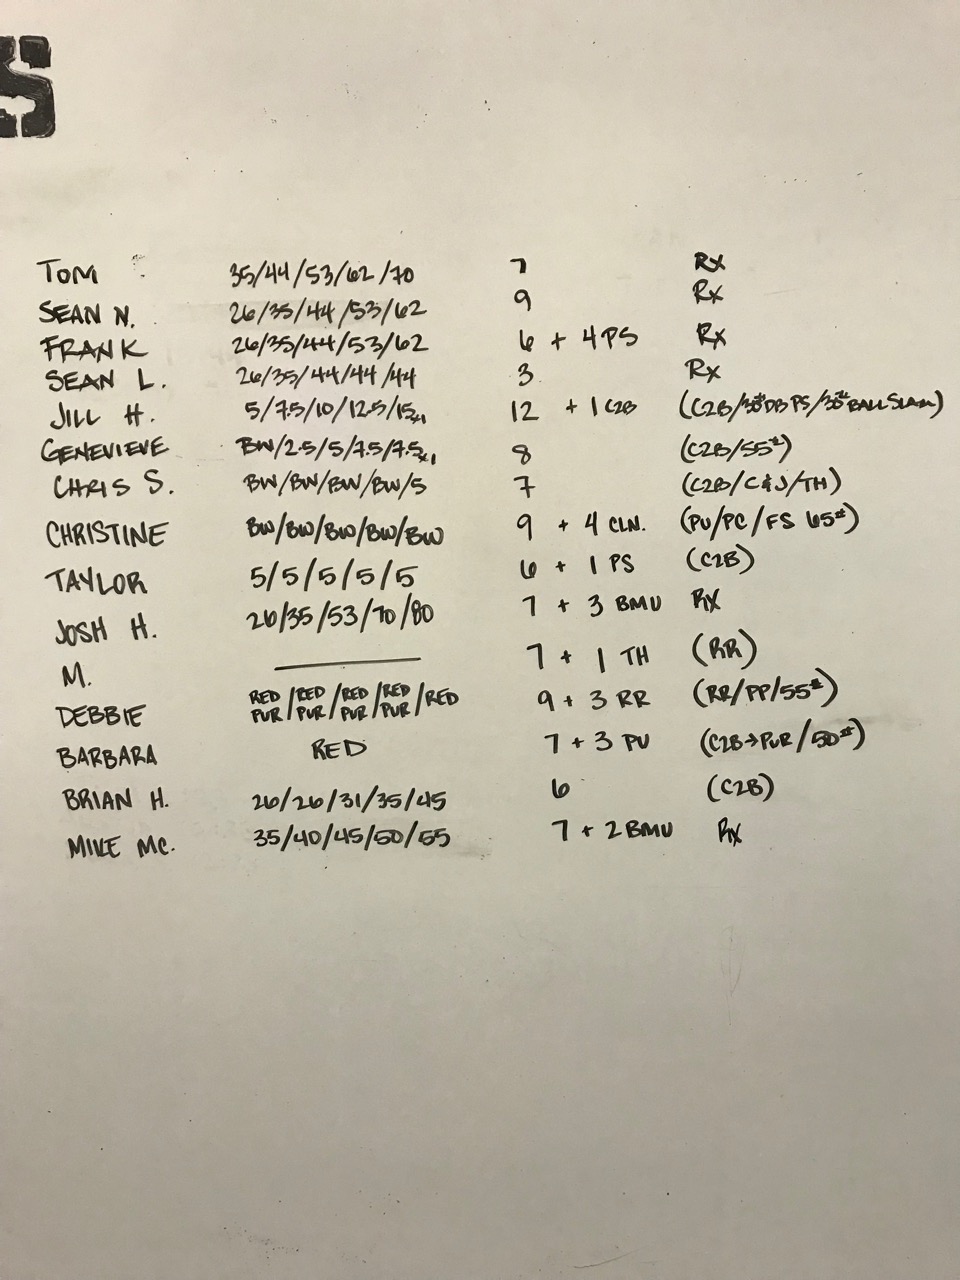 S
TOM 35/44/53/62/70 7 RX
SEAN N. 26/35/44/53/62 9 RX
FRANK 26/35/44/53/62 6 + 4 PS RX
SEAN L. 26/35/44/44/44 3 RX
JILL H. 5/7.5/10/12.5/15x1 12 + 1 C2B (C2B/30# DB PS/30# BALL SLAM)
GENEVIEVE BW/2.5/5/7.5/7.5x1 8 (C2B/55#)
CHRIS S. BW/BW/BW/BW/5 7 (C2B/C&J/TH)
CHRISTINE BW/BW/BW/BW/BW 9 + 4 CLN. (PU/PC/FS 65#)
TAYLOR 5/5/5/5/5 6 + 1 PS (C2B)
JOSH H. 26/35/53/70/80 7 + 3 BMU RX
M. 7 + 1 TH (RR)
DEBBIE RED PUR/RED PUR/RED PUR/RED PUR/RED 9 + 3 RR (RR/PP/55#)
BARBARA RED 7 + 3 PU (C2B→PUR/50#)
BRIAN H. 26/26/31/35/45 6 (C2B)
MIKE MC. 35/40/45/50/55 7 + 2 BMU RX